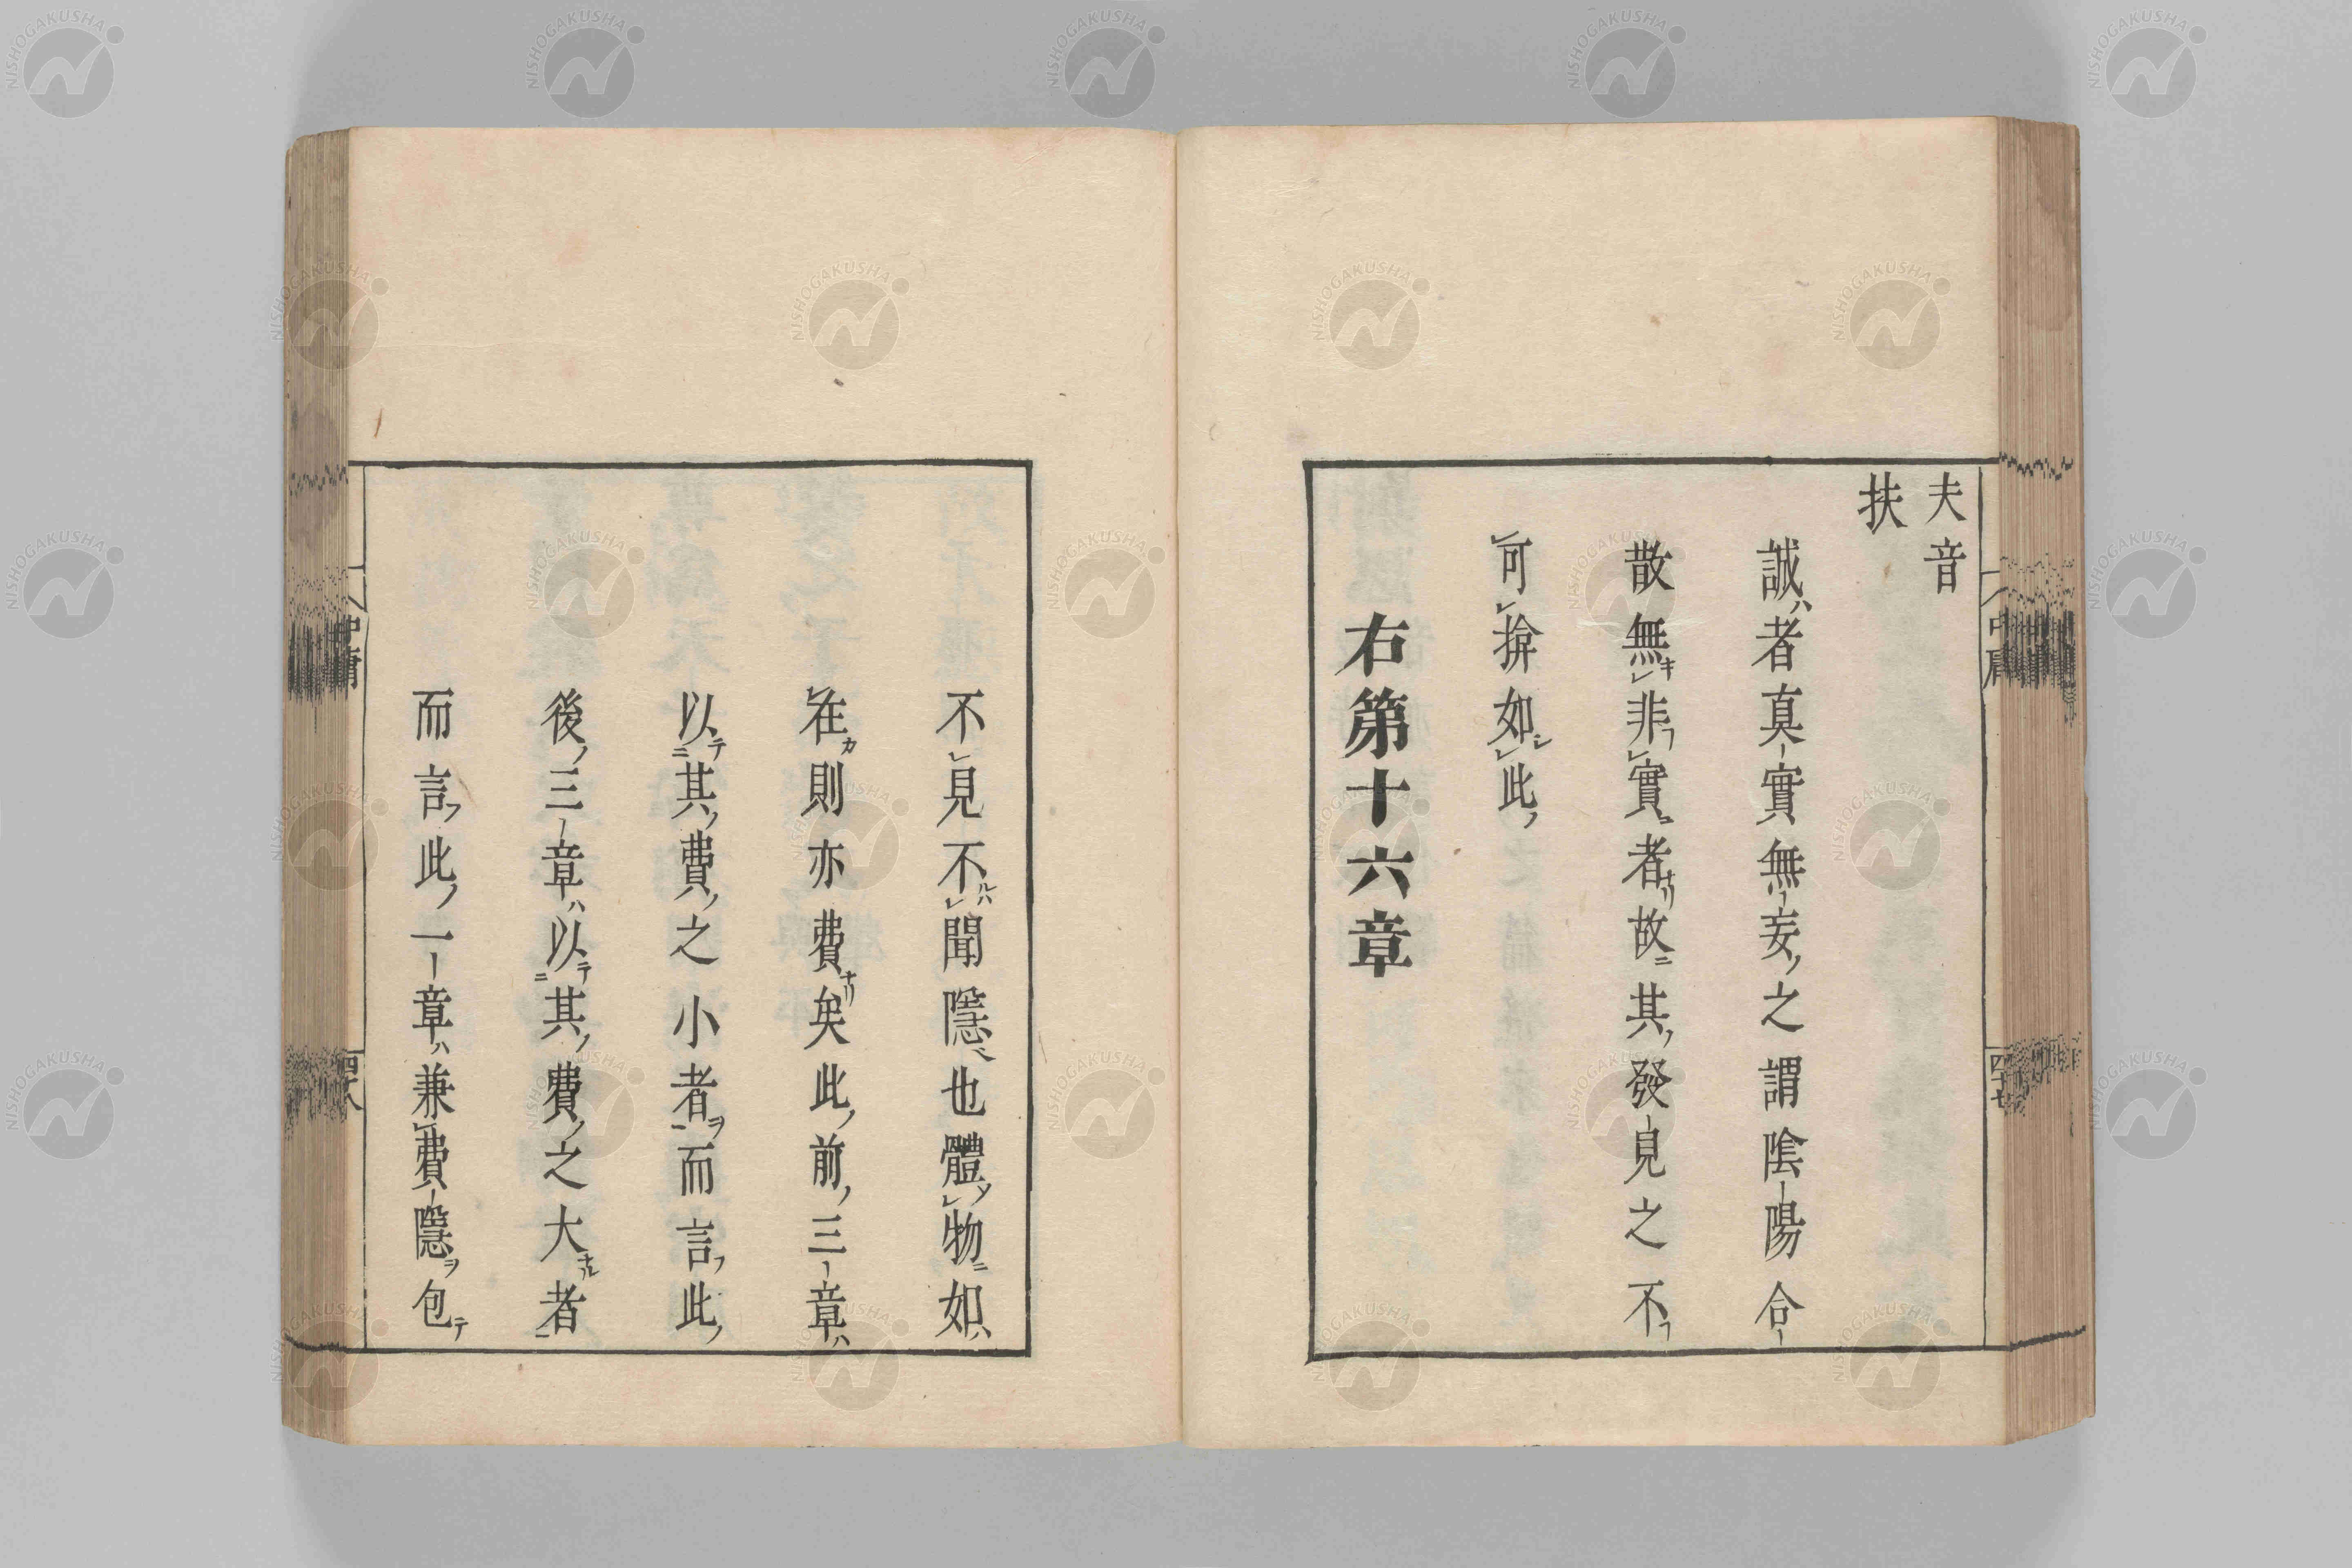 夫音
扶
誠ハ者真實無妄ノ之謂陰陽合
散無キレ非フレ實ニ者ナリ故ニ其ノ發見之不フ
レ可レ揜如シレ此ノ
右第十六章
中庸
四十七
不レ見不ルハレ聞隱也體ソレ物ニ如ハ
レ在カ則亦費ナリ矣此ノ前ノ三章ハ
以テニ其ノ費ノ之小者ヲ一而言フ此ノ
後ノ三章ハ以テニ其ノ費ノ之大ナル者一
而言フ此ノ一章ハ兼レ費隱ヲ包テ
中庸
四十八
NISHOGAKUSHA